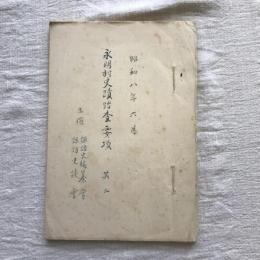 昭和八年六月
永明村史蹟踏査要項 其二
主催 諏訪史編纂会
諏訪史談会